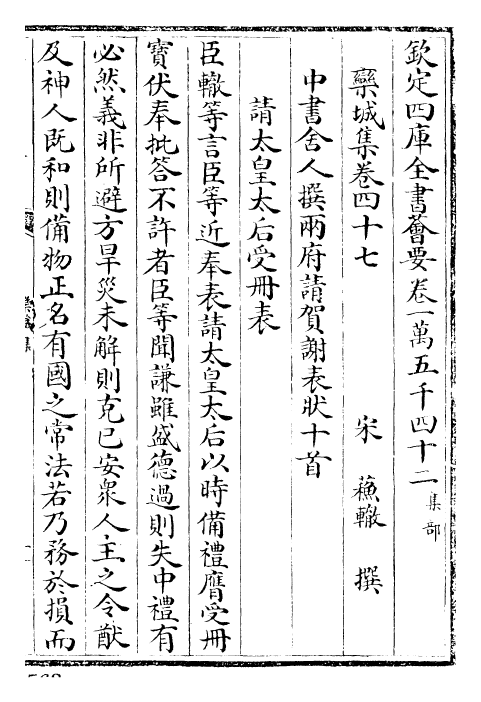 欽定四庫全書薈要卷一萬五千四十二集部
欒城集卷四十七 宋 蘓轍 撰
中書舍人撰兩府請賀謝表狀十首
請太皇太后受冊表
臣轍等言臣等近奉表請太皇太后以時備禮膺受冊
寶伏奉批答不許者臣等聞謙雖盛德過則失中禮有
必然義非所避方旱災未解則克已安衆人主之令猷
及神人既和則備物正名有國之常法若乃務於損而